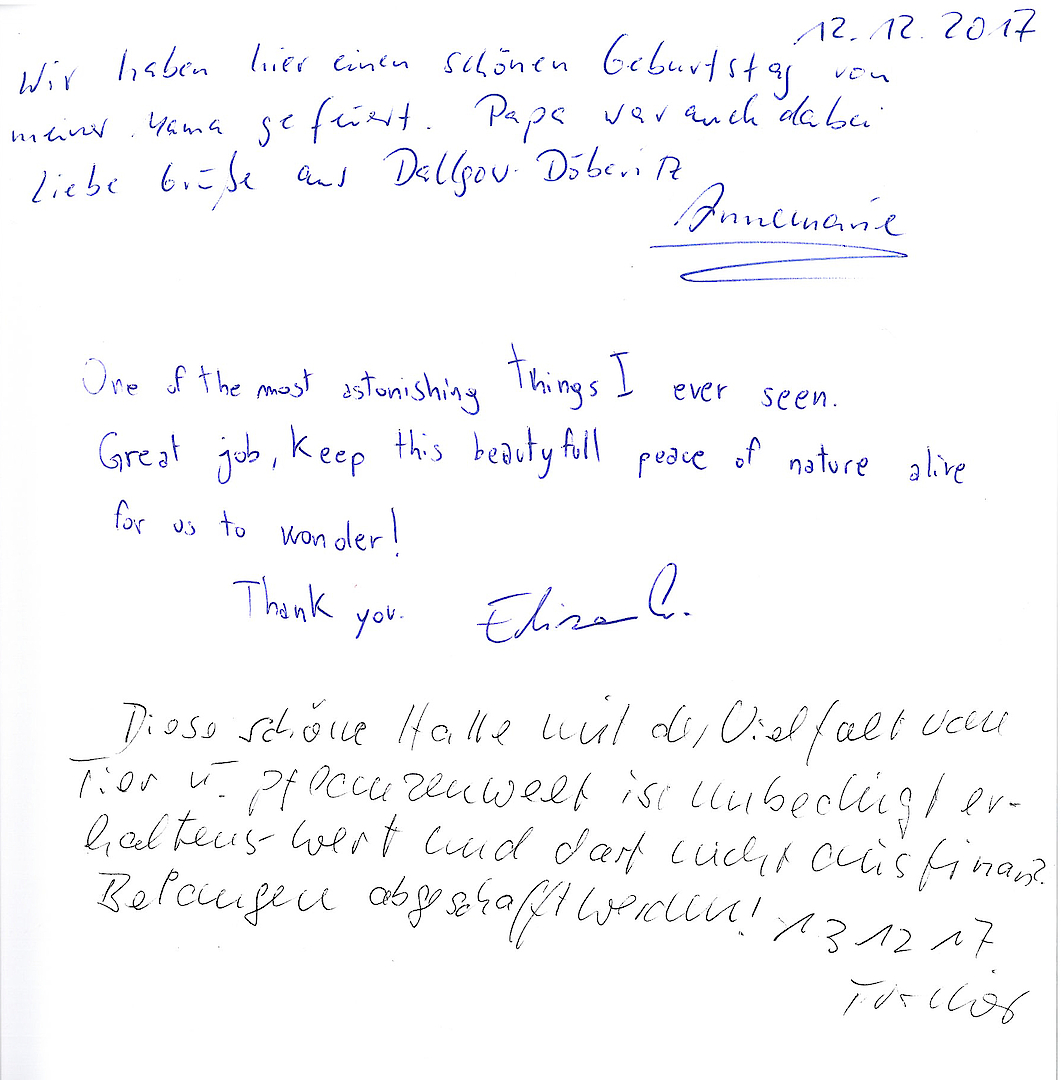 12. 12. 2017
Wir haben hier einen schönen Geburtstag von
meiner Mama gefeiert. Papa war auch dabei
Liebe Grüße aus Dallgow-Döberitz
Annemarie
One of the most astonishing things I ever seen.
Great job, keep this beautyfull peace of nature alive
for us to wonder!
Thank you. Elisa C.
Diese schöne Halle mit der Vielfalt von
Tier u. Pflanzenwelt ist unbedingt er-
haltens-wert und darf nicht aus finanz.
Belangen abgeschafft werden! 13 12 17